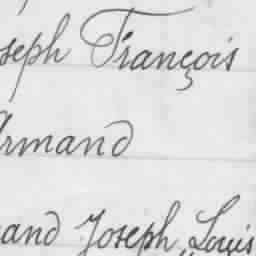 seph François
Armand
and Joseph, Louis